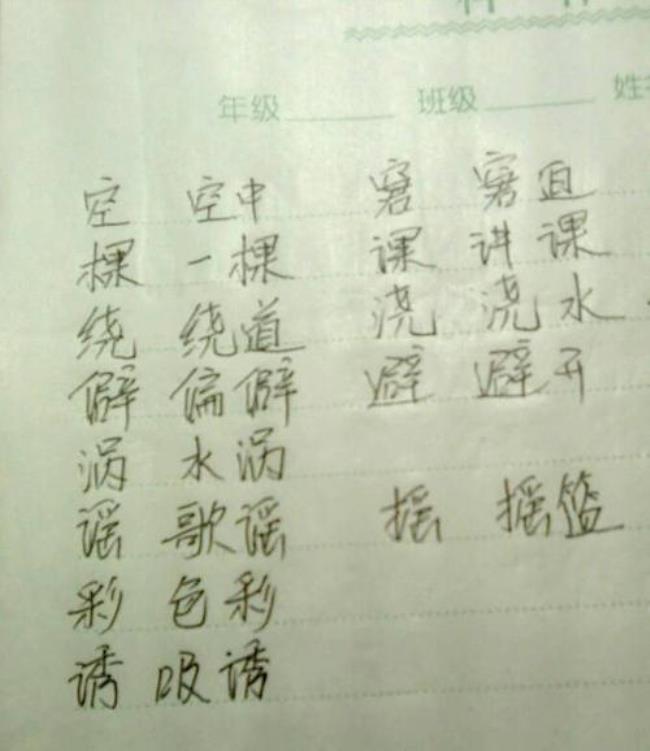 年级 班级 姓
空 空中
棵 一棵 课 讲课
绕 绕道 浇 浇水
僻 偏僻 避 避开
涡 水涡
谣 歌谣 摇 摇篮
彩 色彩
诱 吸诱